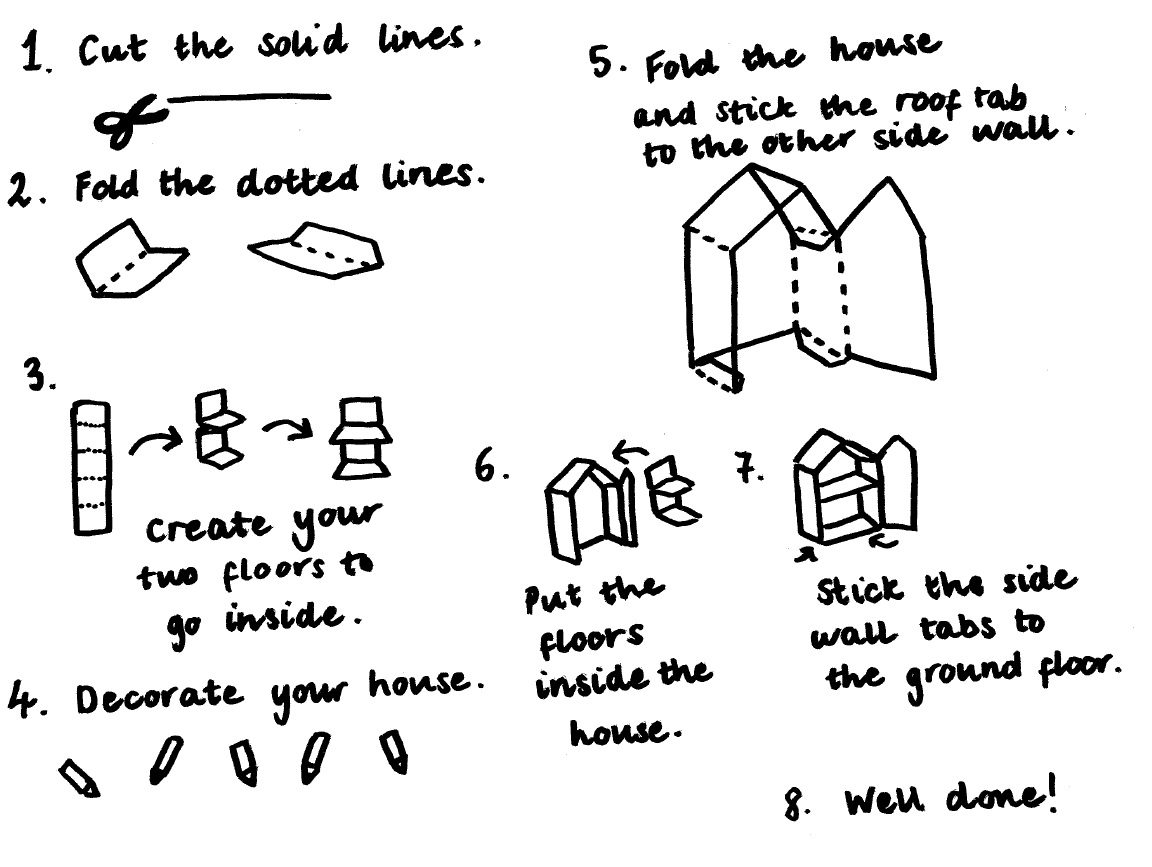 1. Cut the solid lines.
2. Fold the dotted lines.
3.
Create your
two floors to
go inside.
4. Decorate your house.
5. Fold the house
and stick the roof tab
to the other side wall.
6.
Put the
floors
inside the
house.
7.
Stick the side
wall tabs to
the ground floor.
8. Well done!